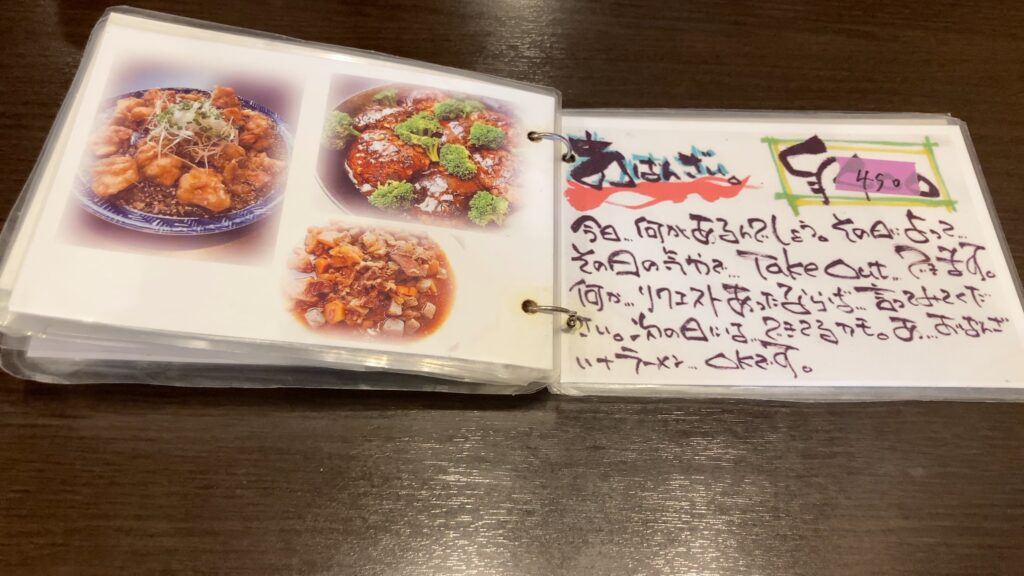 おばんざい。
¥450。
今日… 何があるんでしょう。その日によって…
その日の気分で… Take Out… できます。
何か… リクエストあったならば… 言ってみてくだ
さい。次の日には… できてるカモ。あ… おばんざ
い+ラーメン… OKです。